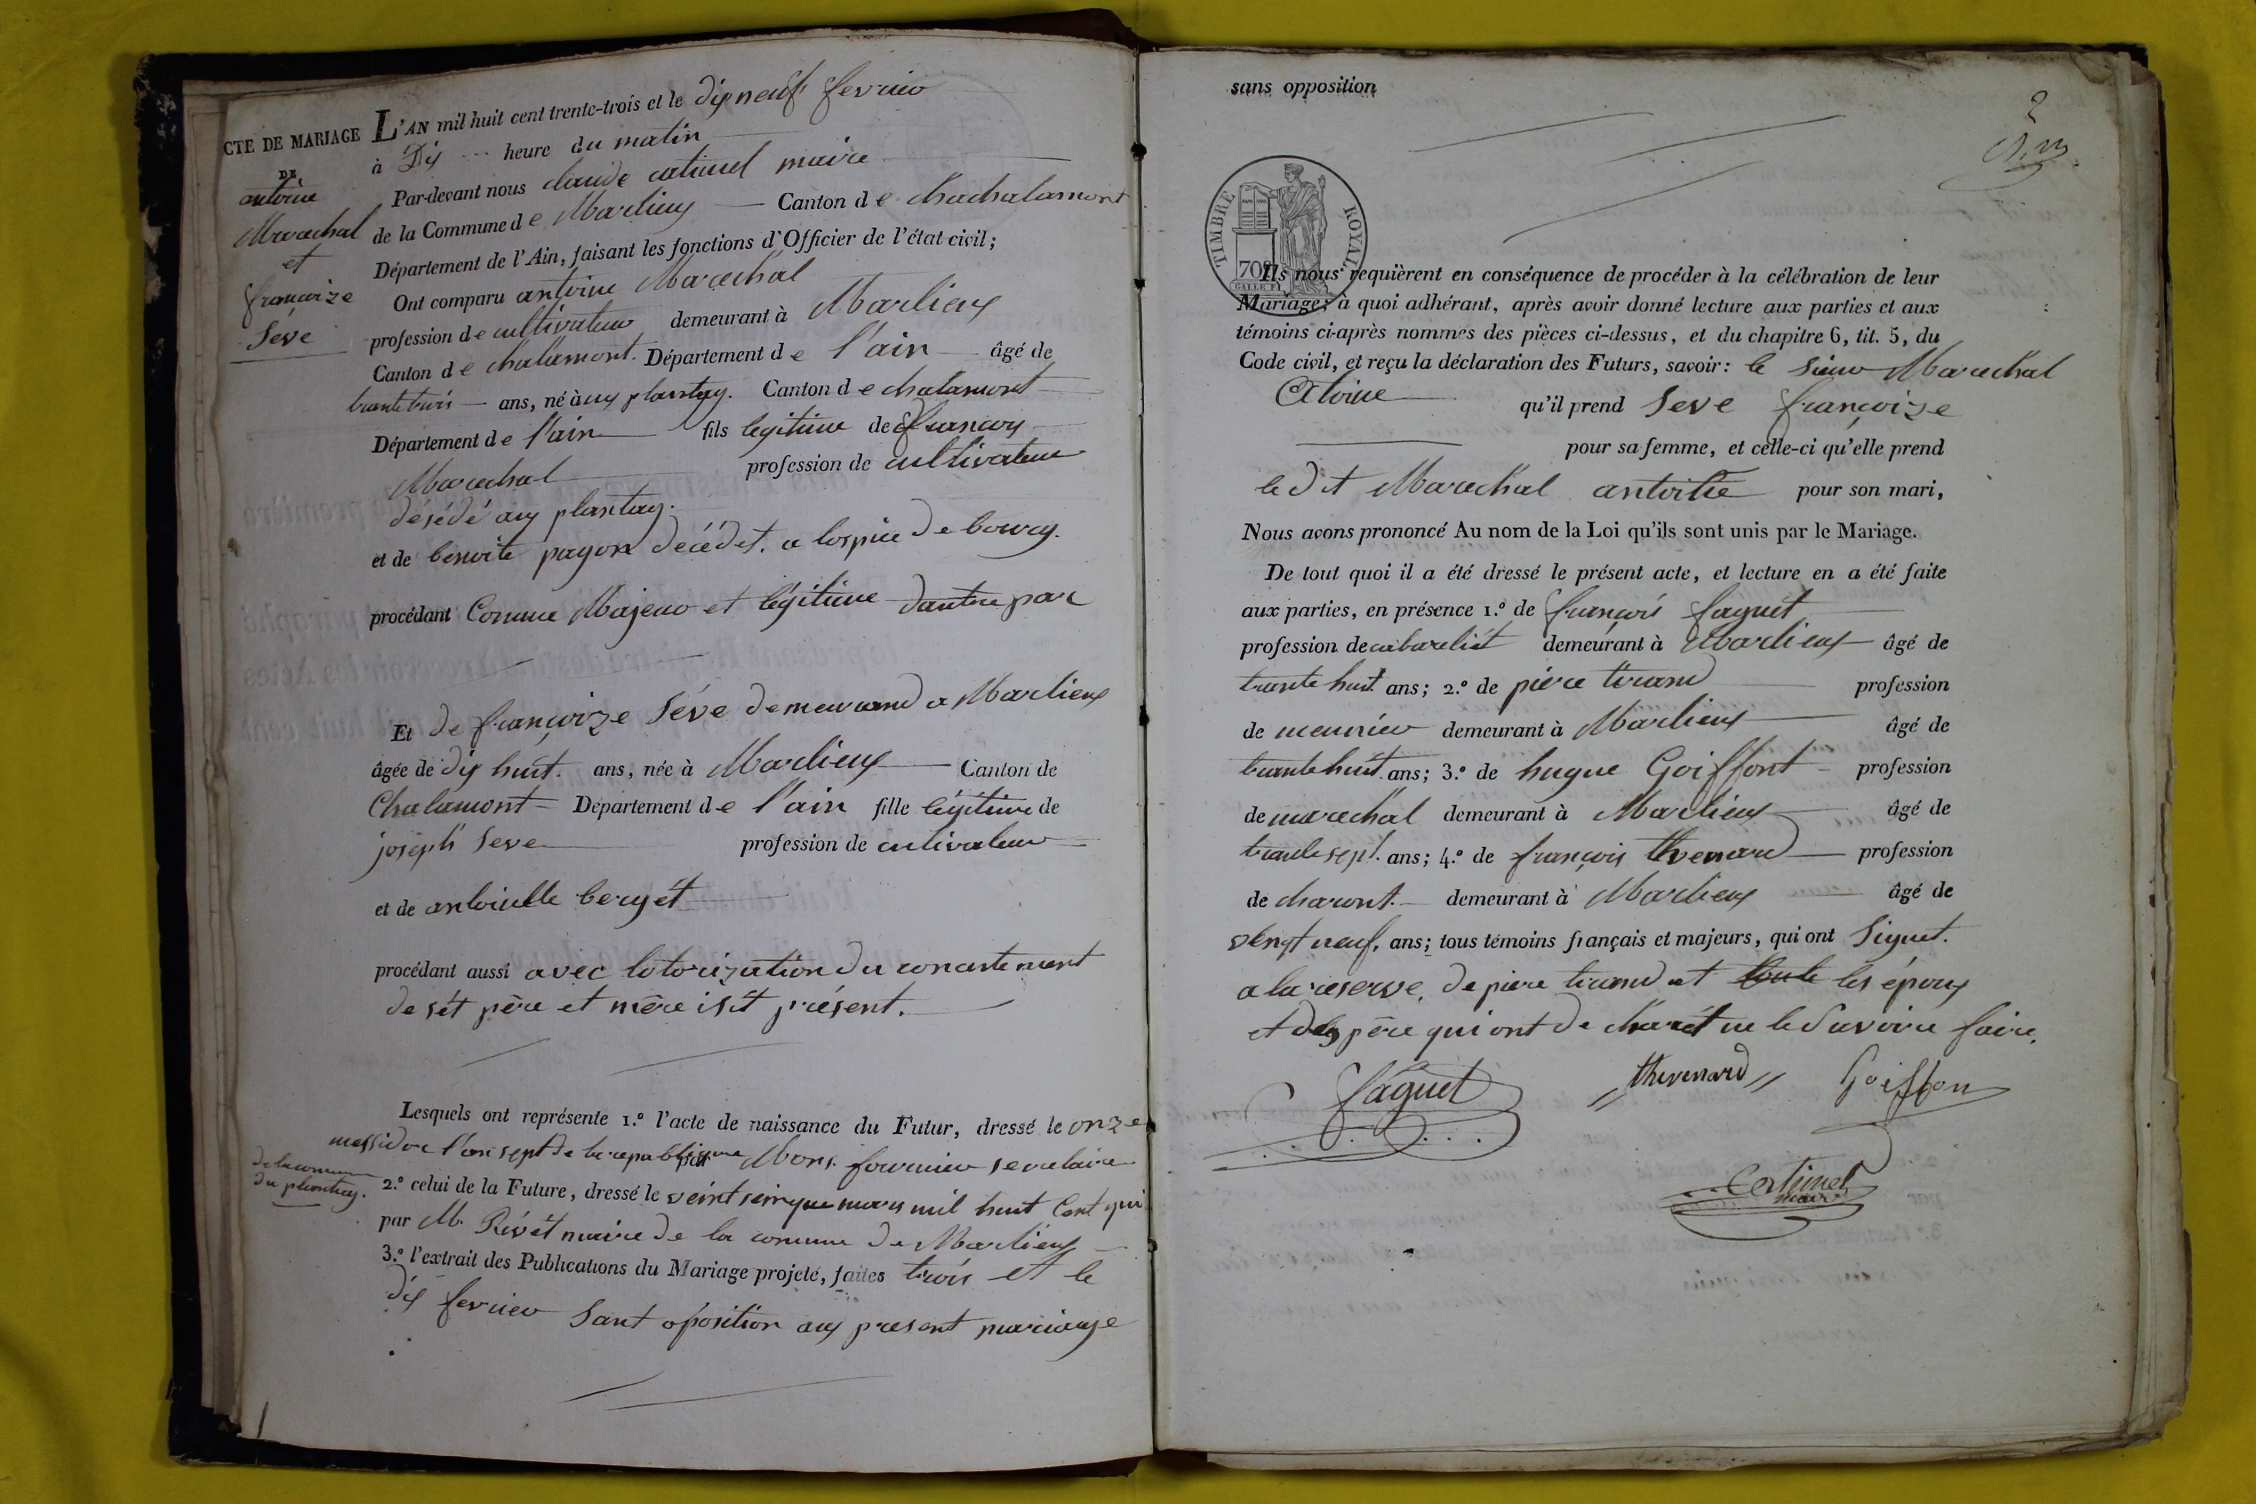 CTE DE MARIAGE
DE
antoine
Marechal
et
françoize
Seve
L'AN mil huit cent trente-trois et le dix neuf fevrier
à Dix heure du matin
Par-devant nous claude catinel maire
de la Commune de Marlieux Canton de chachalamont
Département de l'Ain, faisant les fonctions d'Officier de l'état civil;
Ont comparu antoine Marechal
profession de cultivateur demeurant à Marlieux
Canton de chalamont. Département de l'ain âgé de
trante trois ans, né à aux plantay. Canton de chalamont
Département de l'ain fils legitime de françois
Marechal profession de cultivateur
désédé aux plantay.
et de benoite pagon décédet. a lospice de bourg.
procédant Comme Majeur et légitime dautre par
Et de françoize Séve demeurand a Marlieux
âgée de dix huit. ans, née à Marlieux Canton de
Chalamont Département de l'ain fille légitime de
joseph Seve profession de cultivateur
et de antoinette berget
procédant aussi avec lotorization du consentement
de sét père et mère isit présent.
Lesquels ont représente 1.º l'acte de naissance du Futur, dressé le onze
messidor l'an sept de la republique par Mons. fournier secretaire
de la commune
du plantay.
2.º celui de la Future, dressé le veint seinque mars mil huit Cent qui
par M. Rivét maire de la comune de Marlieux
3.º l'extrait des Publications du Mariage projeté, faites trois et le
dix fevrier Sant oposition aux present mariauge
sans opposition
2
TIMBRE ROYAL
70c
Ils nous requièrent en conséquence de procéder à la célébration de leur
Mariage; à quoi adhérant, après avoir donné lecture aux parties et aux
témoins ci-après nommés des pièces ci-dessus, et du chapitre 6, tit. 5, du
Code civil, et reçu la déclaration des Futurs, savoir: le Sieur Marechal
Atoine qu'il prend Seve françoize
pour sa femme, et celle-ci qu'elle prend
le dit Marechal antoine pour son mari,
Nous avons prononcé Au nom de la Loi qu'ils sont unis par le Mariage.
De tout quoi il a été dressé le présent acte, et lecture en a été faite
aux parties, en présence 1.º de françois faguet
profession de cabaretiét demeurant à Marlieux âgé de
trante huit ans; 2.º de piere tirand profession
de meunier demeurant à Marlieux âgé de
trante huit. ans; 3.º de hugue Goiffont profession
de marechal demeurant à Marlieux âgé de
trante sept. ans; 4.º de françois thvenard profession
de charont. demeurant à Marlieux âgé de
vengt neuf. ans; tous témoins français et majeurs, qui ont Signet.
a la reserve, de piere tirand et toute les époux
et des père qui ont de charét ne le Savoire faire.
faguet
thevenard
Goiffon
Catinel
maire